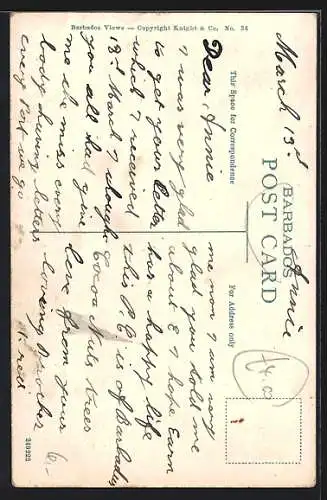 Barbados Views — Copyright Knight & Co, No. 34
BARBADOS
POST CARD
This Space for Correspondence
For Address only
March 13th
Dear, Annie
I was very glad
to get your letter
which I received
13th March I though
you all had give
me the miss every
body having letters
every Port we go
Annie
me non I am very
glad you told me
about E I hope Earn
has a happy life
this P.C is of Barbados
Cocoa Nuts trees
love from your
loving Brother
Fred
249222
6.-